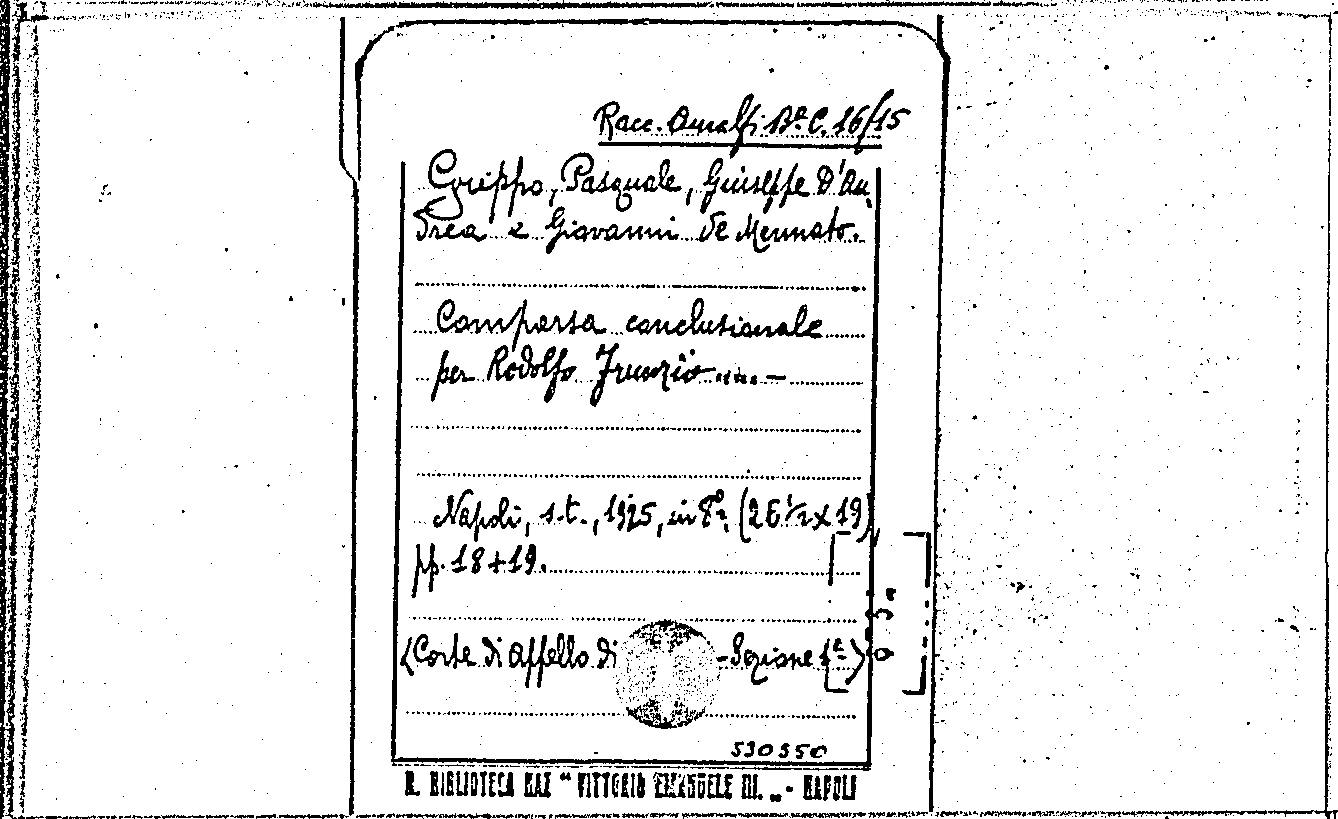 Racc. Amalfi Bª C. 16/15
Grippo, Pasquale, Giuseppe D'An
drea e Giovanni de Mennato.
Comparsa conclusionale
per Rodolfo Frunzio .... -
Napoli, s.t., 1925, in 8º, (26 ½ x 19)
pp. 18+19.
(Corte di Appello di - Sezione 1ª)
530350
R. BIBLIOTECA NAZ "VITTORIO EMANUELE III." - NAPOLI